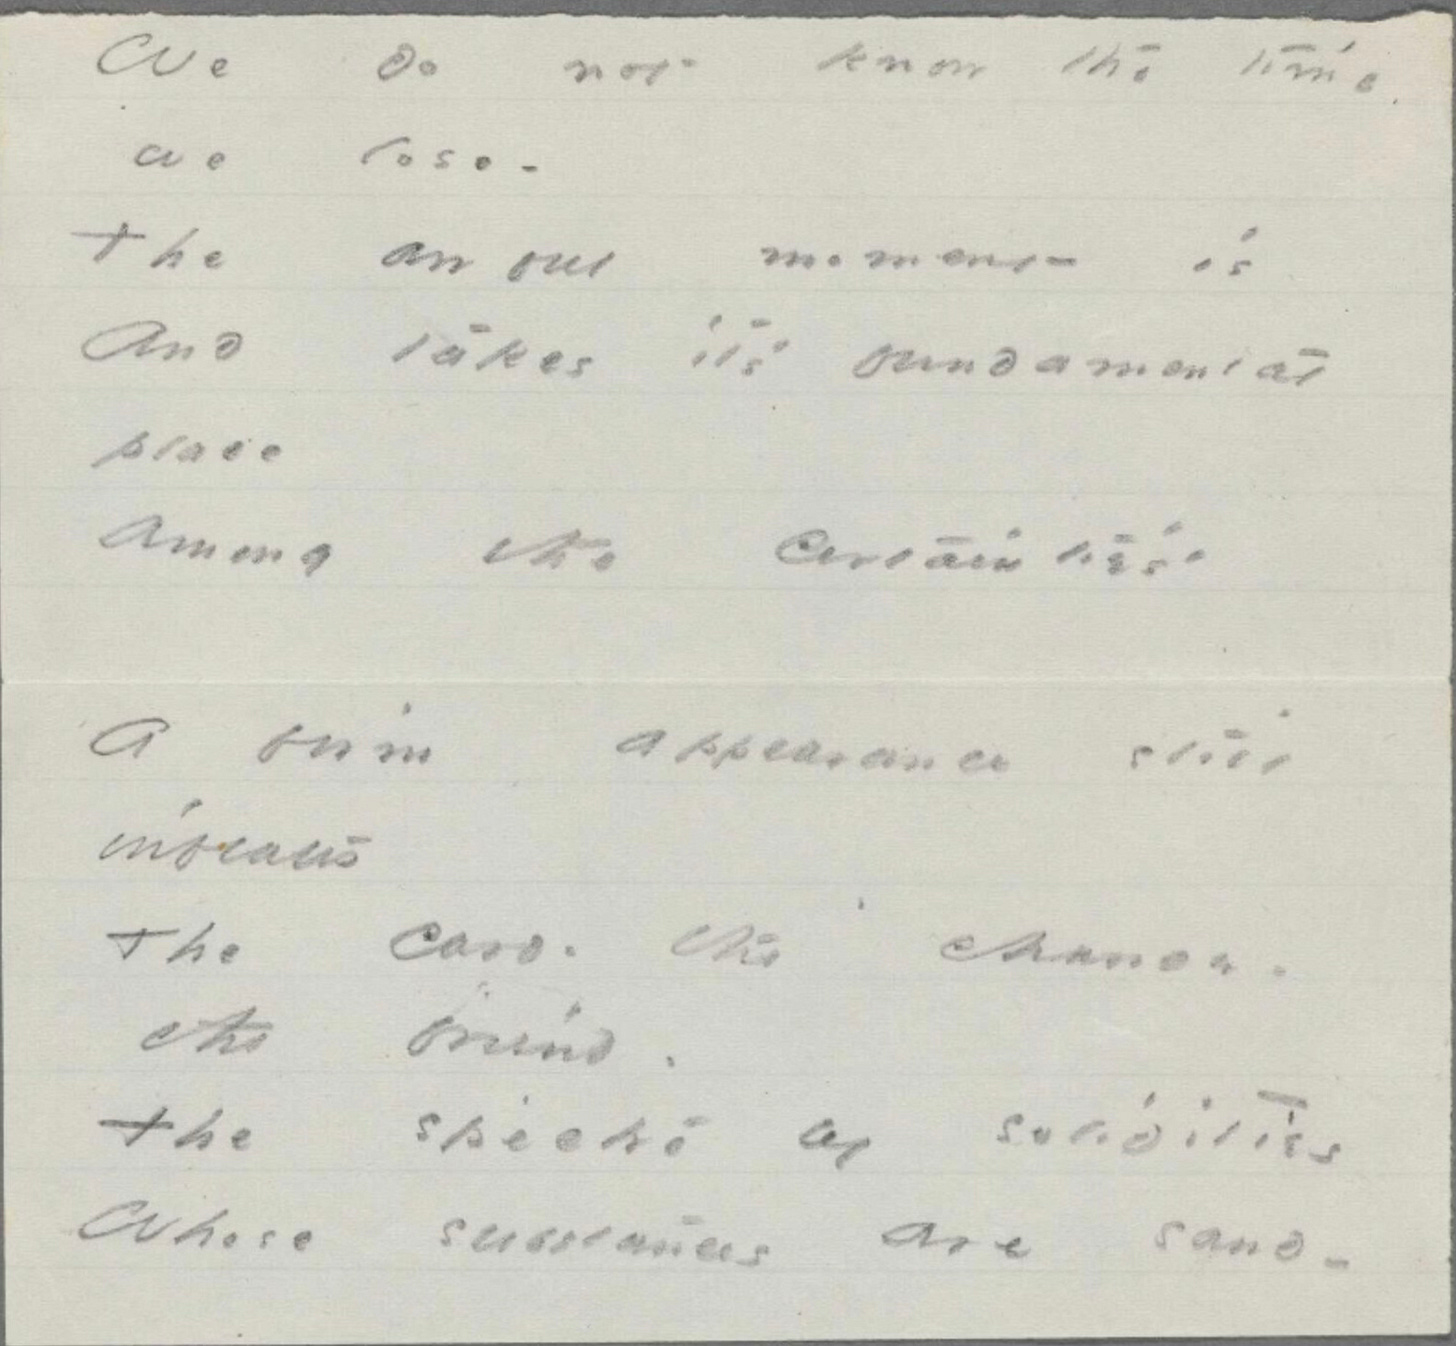 We do not know the time
we lose -
The awful moment is
And takes its fundamental
place
Among the Certainties -
A firm appearance still
inflates
The Card - the chance -
the friend -
The spectre of solidities
Whose substances are sand -